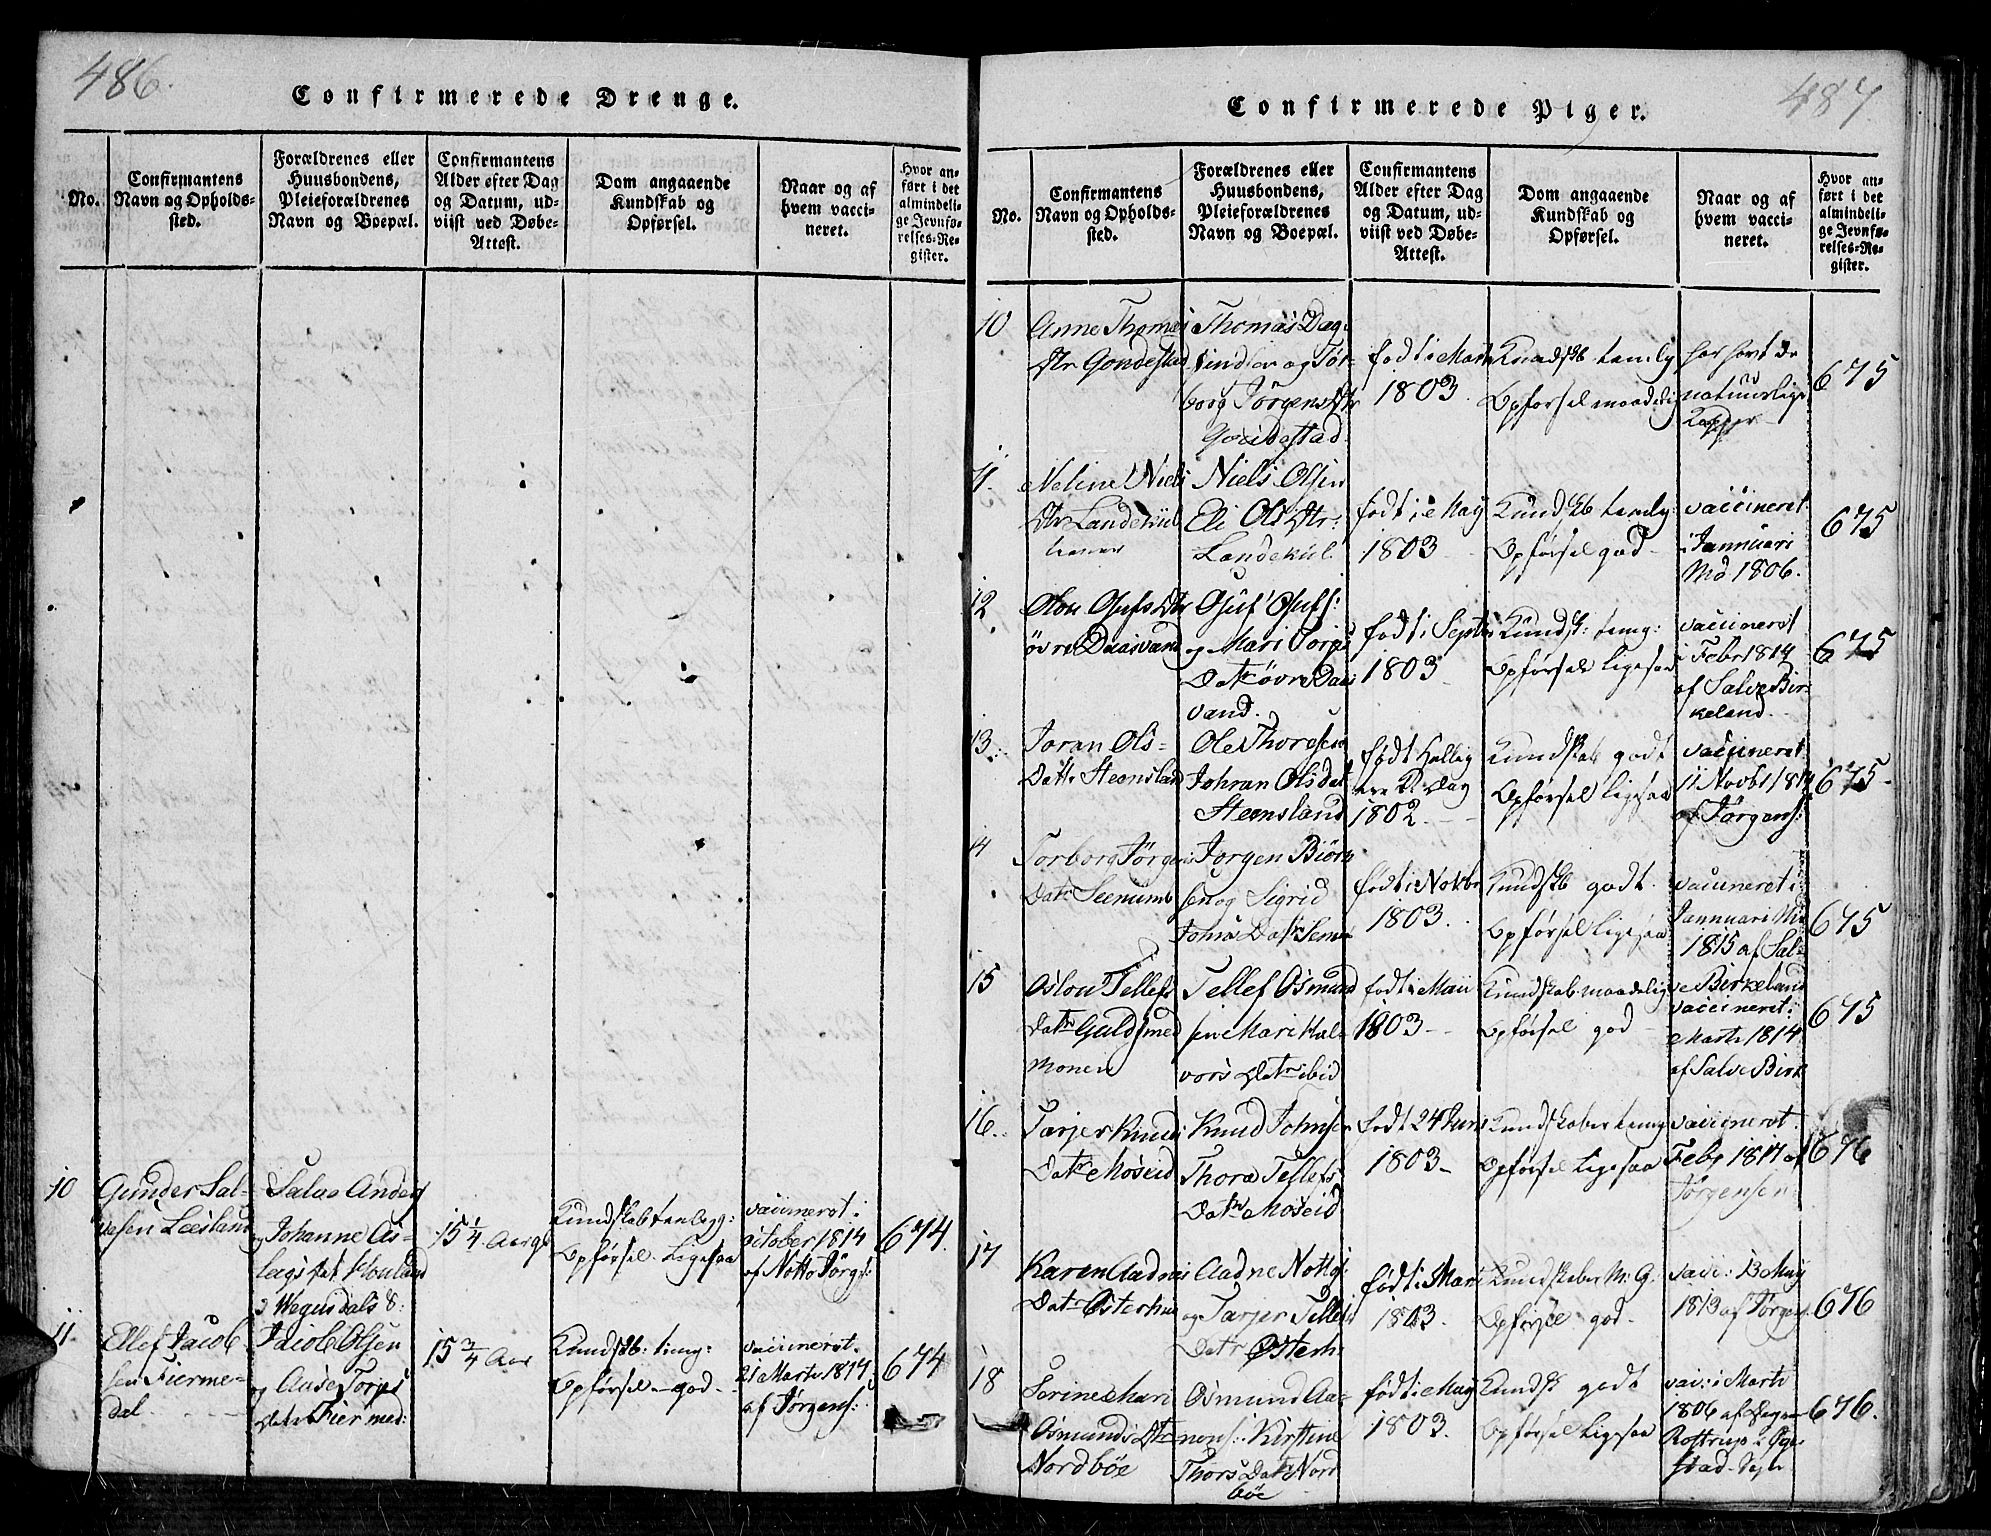 486.
Confirmerede Drenge.
No.
Confirmantens
Navn og Opholds-
sted.
Forældrenes eller
Huusbondens,
Pleieforældrenes
Navn og Boepæl.
Confirmantens
Alder efter Dag
og Datum, ud-
viist ved Døbe-
Attest.
Dom angaaende
Kundskab og
Opførsel.
Naar og af
hvem vacci-
neret.
Hvor an-
ført i det
almindeli-
ge Jevnfø-
relses-Re-
gister.
10
Gunder Sal-
vesen
Johanne As-
15 1/4 Aar
Opførsel ligesaa
vaccineret i
October 1814
af Notto Jørgs:
674.
11.
Ellef Jacob-
sen Fierme-
dal
Jacob Olsen
og
Datr Fiermed:
15 3/4 Aar
Opførsel god
vaccineret
21 Marti 1814
af Jørgens:
674
487
Confirmerede Piger.
No.
Confirmantens
Navn og Opholds-
sted.
Forældrenes eller
Huusbondens,
Pleieforældrenes
Navn og Boepæl.
Confirmantens
Alder efter Dag
og Datum, ud-
viist ved Døbe-
Attest.
Dom angaaende
Kundskab og
Opførsel.
Naar og af
hvem vacci-
neret.
Hvor an-
ført i det
almindeli-
ge Jevnfø-
relses-Re-
gister.
10
Anne Thomas
Dtr Gondestad
Thomas Dag-
og Tor-
borg Jørgens Dtr
Gondestad.
født i Marti
1803.
Kundskb temlig
Opførsel maadelig
har havt de
naturlige
Kopper
675
11.
Neline Niels
Dtr Landekiil
Niels Olsen
Eli Ols Dtr:
Landekiil
født i May
1803
Kundskb temlig:
Opførsel god
vaccineret
i Januari
Md 1806.
675
12
øvre Daasvand
og Mari Torjs
Datr øvre Daas
vand.
født i Septr
1803
Kundsk: temg:
Opførsel ligesaa
vaccineret
i Febr 1814
af Salve Bir-
keland.
675
13.
Joran Ols-
Datr Steensland
Ole Thoresen
Johran Olsdat
Steensland
født Hellig
1802.
Kundskab godt
Opførsel ligesaa
vaccineret
11 Novbr 1814
af Jørgens:
675.
14
Torborg Jørgens
Datr
Jørgen Biørn
sen og Sigrid
født i Novbr
1803.
Kundskb godt.
Opførsel ligesaa
vaccineret i
Januari Md
1815 af Sal-
ve Birkeland
675
15
Oslou Tellefs
Datr Guldsmed
moen
Tellef Osmund
sen Mari Hal-
vors Datr ibid
født i Mai
1803
Kundskab maadelig
Opførsel god
vaccineret i
Marti 1814
af Salve Birk
675
16.
Tarjer Knuds
Datr Moseid
Knud Johnsen
Thora Tellefs
Datr Moseid
født 24 Juni
1803
Kundskaber temg
Opførsel ligesaa
vaccineret
Feb 1814 af
Jørgensen
676
17
Karen Aadnes
Datr Østerhus
Aadne Nottos:
og Tarjer Tellefs
Datr Østerh
født i Marti
1803.
Kundskaber M: G.
Opførsel god
vacc: 13 May
1813 af Jørgens
676
18
Serine Mari
Osmunds Dtr
Nordbøe
Osmund Aa-
nens: Kirstine
Thors Datr Nord
bøe
født i May
1803.
Kundsk godt
Opførsel ligesaa
vac: i Marti
1806 af
Rottrup i Øge
stad Sogn
676.